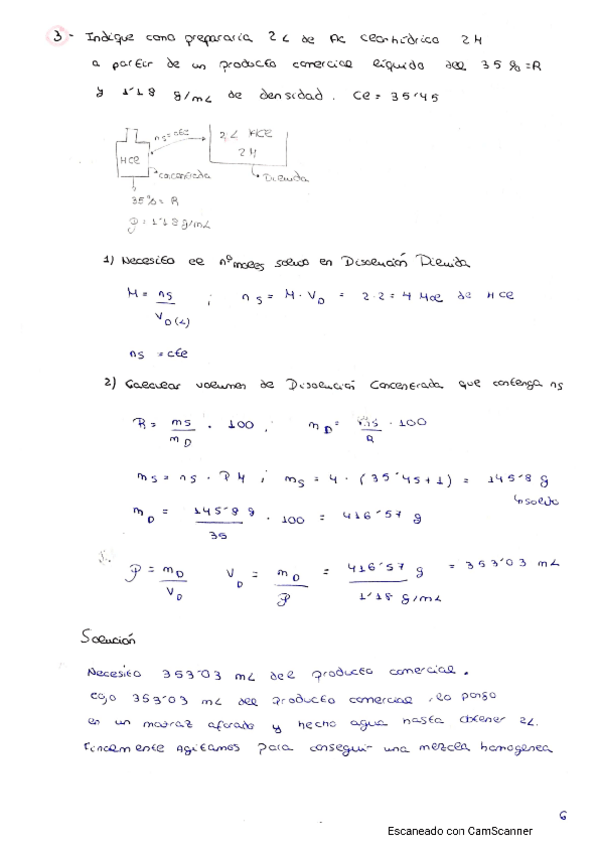 3- Indique como prepararía 2 L de Ac Clorhídrico 2 M
a partir de un producto comercial líquido del 35 % = R
y 1'18 g/mL de densidad. Cl = 35'45
ns = cte
2 L HCl
2 M
HCl
concentrada
Diluida
35% = R
ρ = 1'18 g/mL
1) Necesito el nº moles soluto en Disolución Diluida
M = ns / VD (L) ; ns = M · VD = 2 · 2 = 4 Mol de HCl
ns = cte
2) Calcular volumen de Disolución Concentrada que contenga ns
R = ms / mD · 100 ; mD = ms / R · 100
ms = ns · PM ; ms = 4 · (35'45 + 1) = 145'8 g
soluto
mD = 145'8 g / 35 · 100 = 416'57 g
ρ = mD / VD VD = mD / ρ = 416'57 g / 1'18 g/mL = 353'03 mL
Solución
Necesito 353'03 mL del producto comercial.
Cojo 353'03 mL del producto comercial, lo pongo
en un matraz aforado y hecho agua hasta obtener 2L.
Finalmente agitamos para conseguir una mezcla homogenea
6
Escaneado con CamScanner